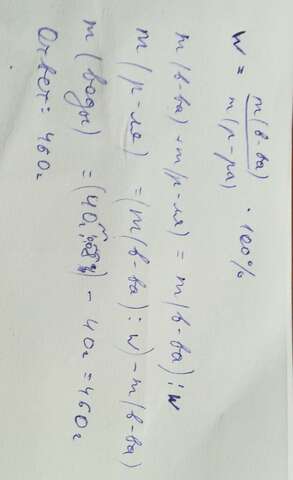 w = m(в-ва) / m(р-ра) · 100%
m(в-ва) + m(р-ля) = m(в-ва) : w
m(р-ля) = (m(в-ва) : w) - m(в-ва)
m(воды) = (40 : ) - 40г = 460г
Ответ: 460г